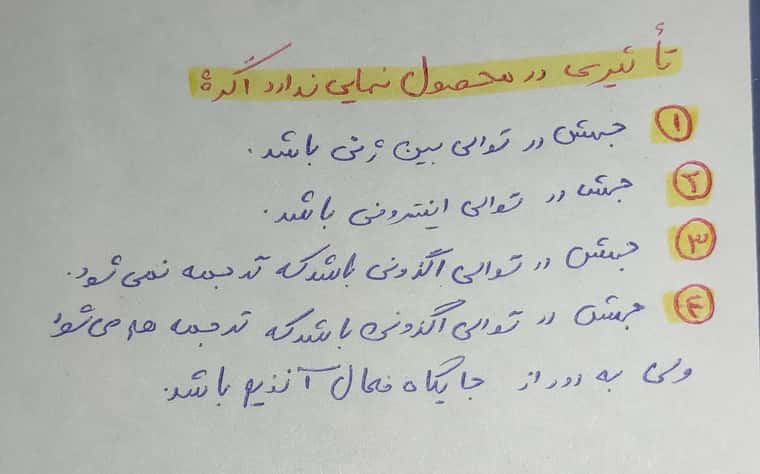 تأثیری در محصول نهایی ندارد اگر:
۱ جهش در توالی بین ژنی باشد.
۲ جهش در توالی اینترونی باشد.
۳ جهش در توالی اگزونی باشد که ترجمه نمی شود.
۴ جهش در توالی اگزونی باشد که ترجمه هم می شود
ولی به دور از جایگاه فعال آنزیم باشد.